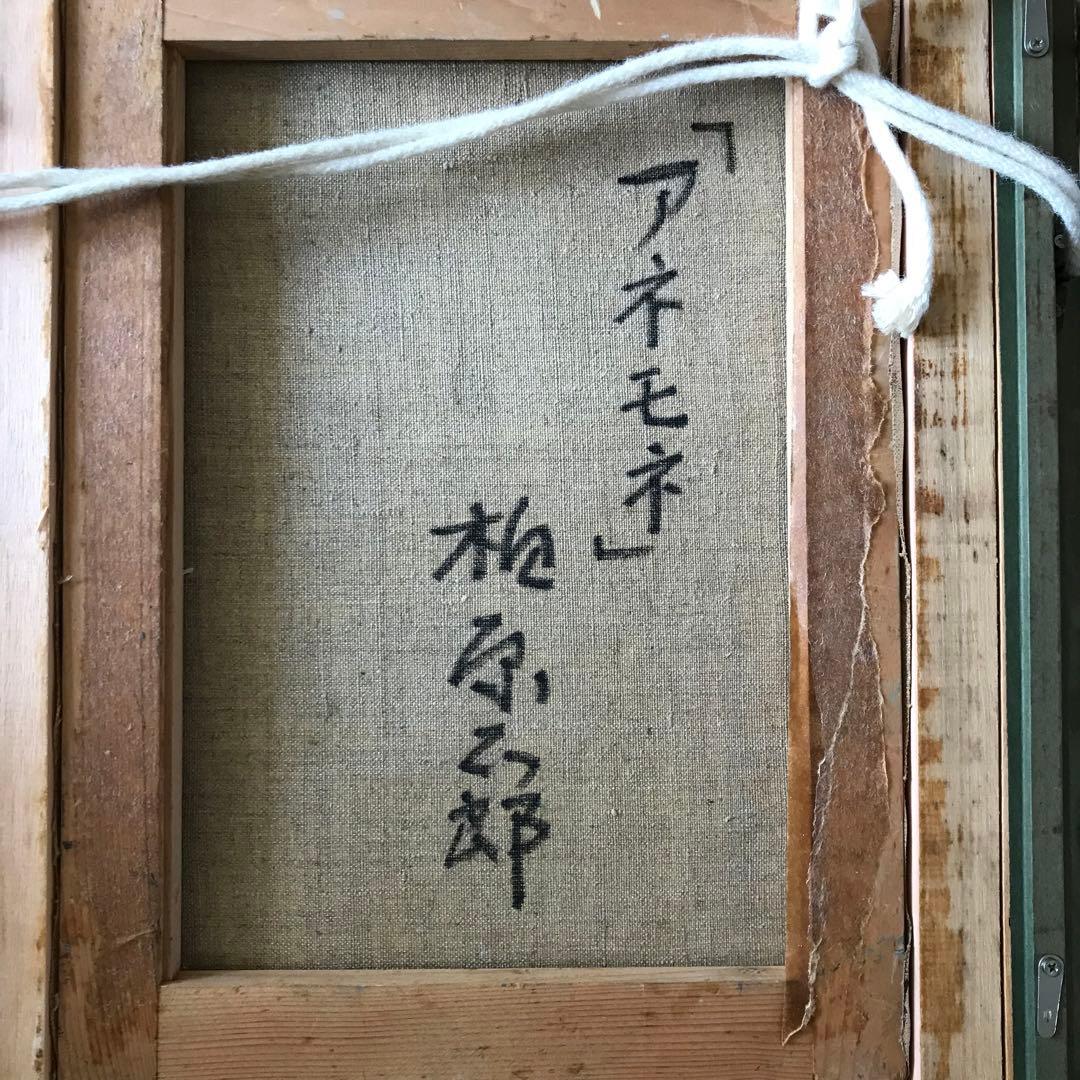 「アネモネ」
柏原六郎